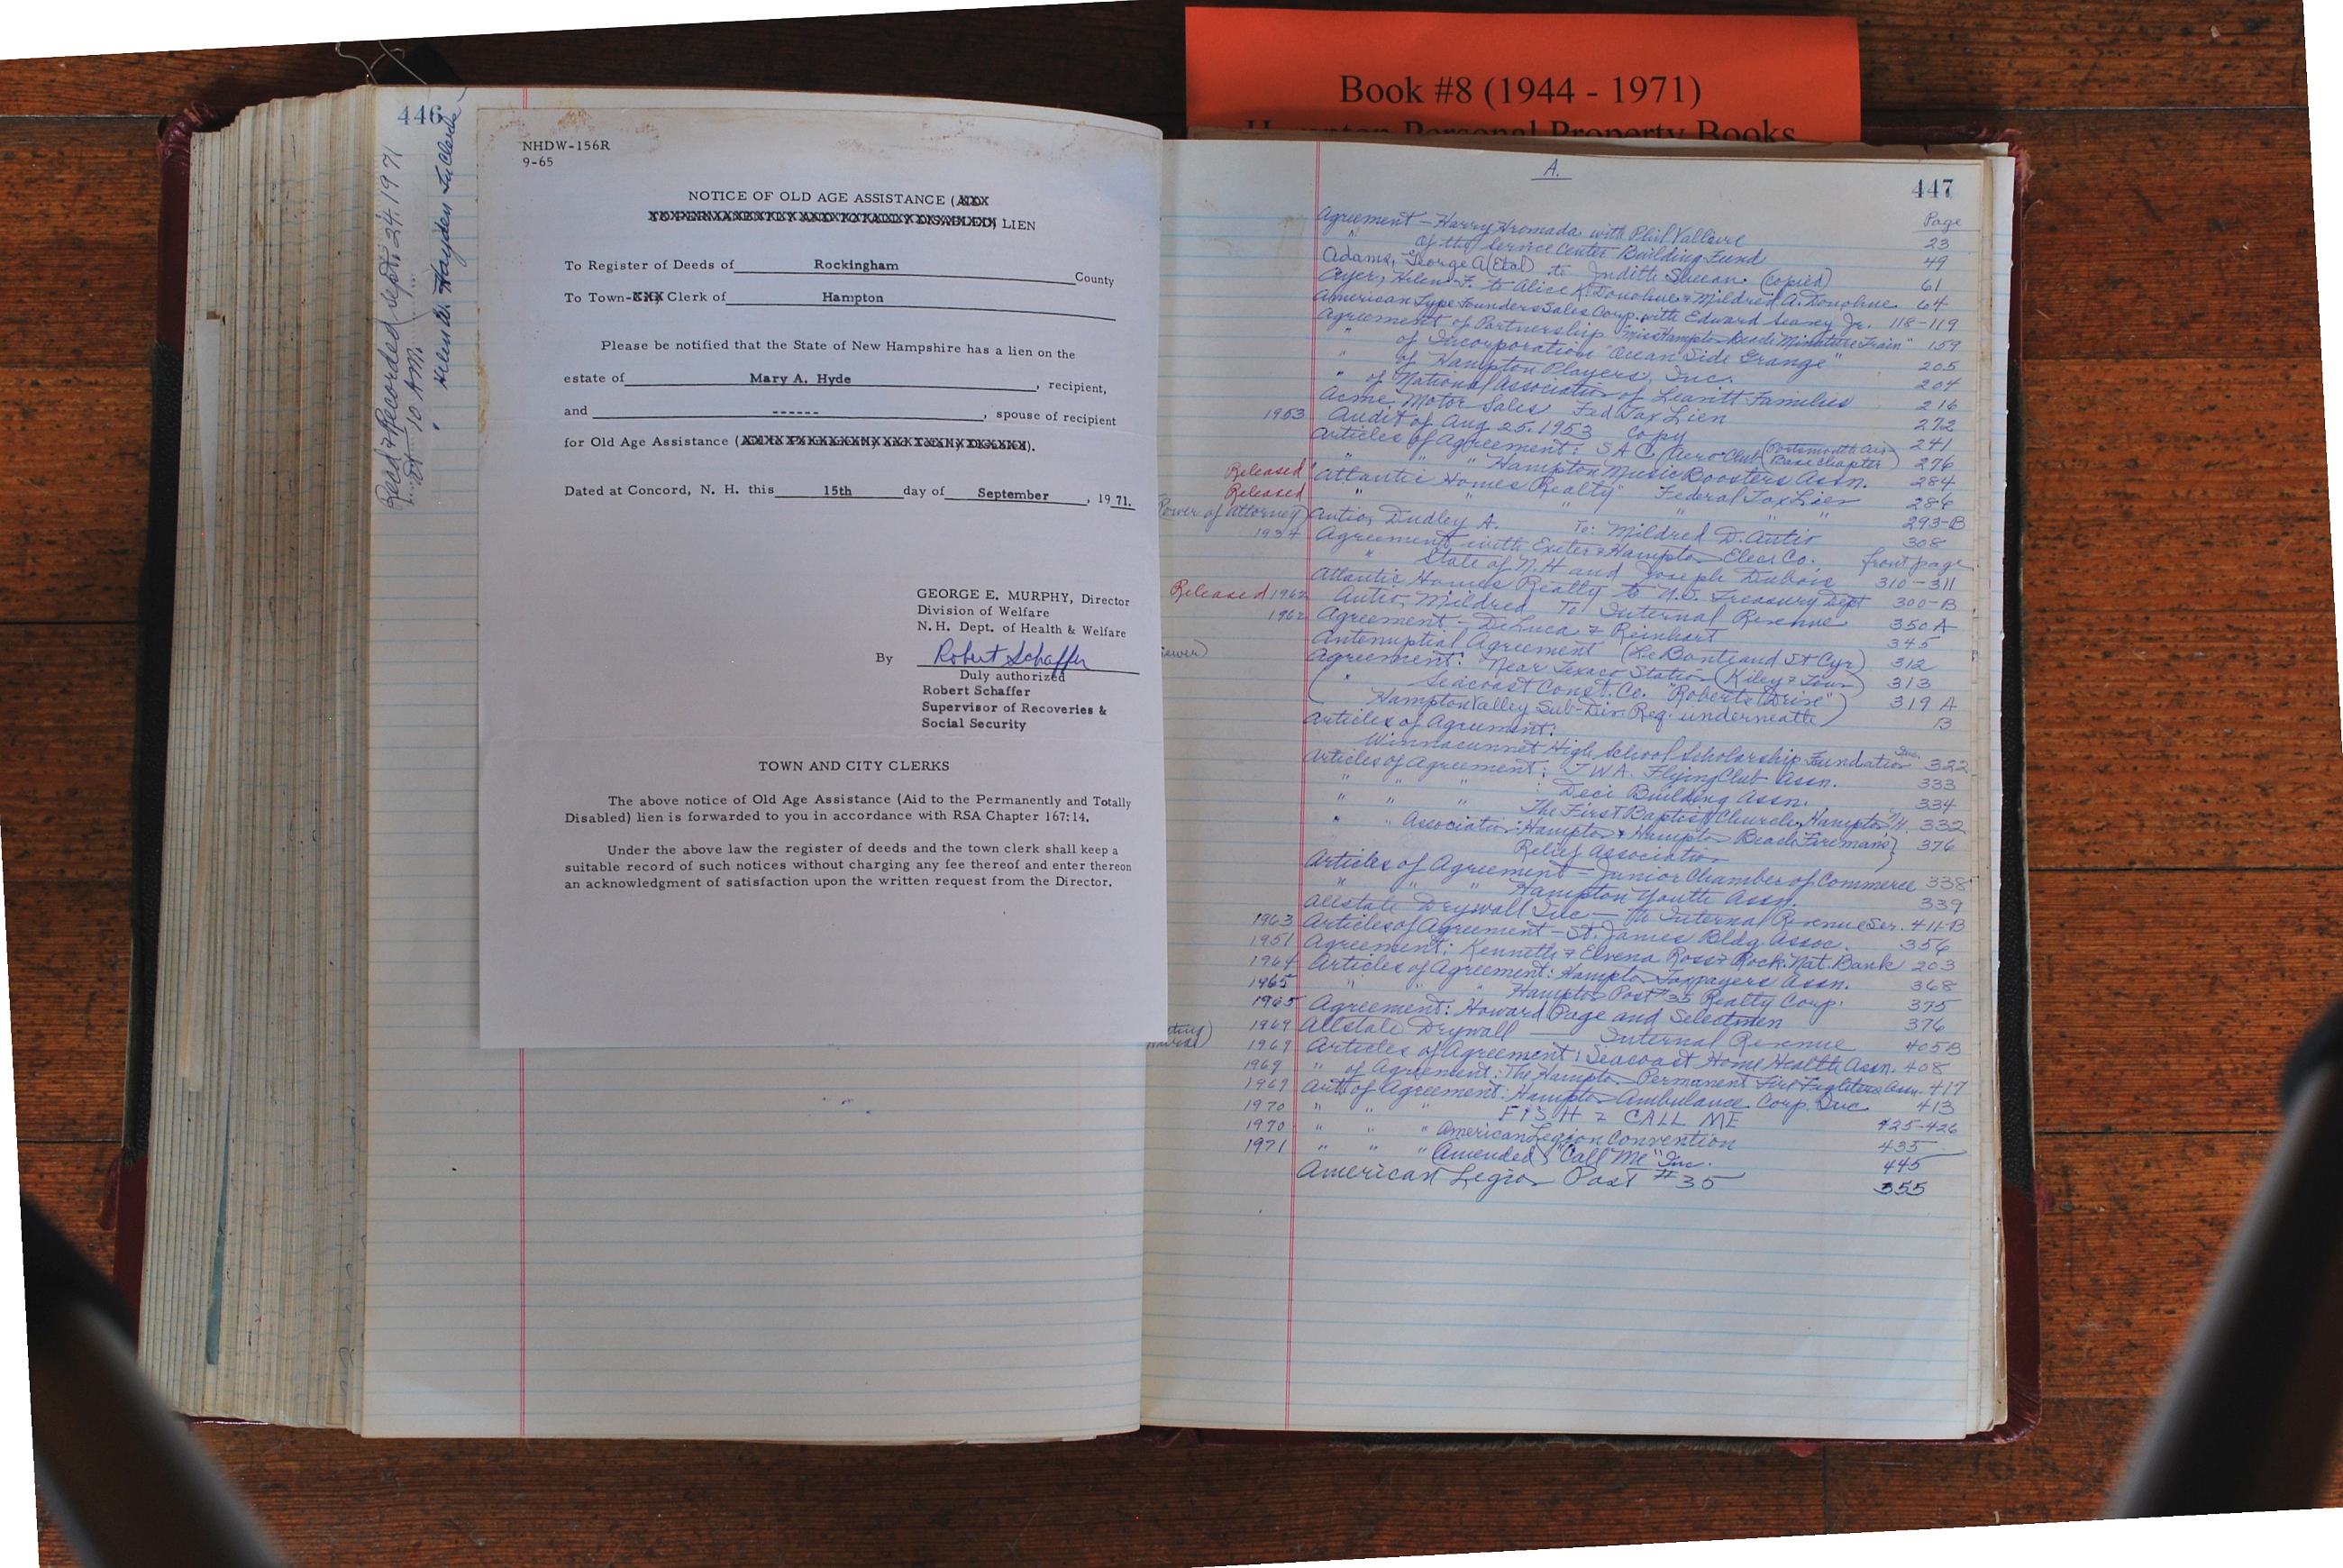 Book #8 (1944 - 1971)
Hampton Personal Property Books
446
Recd & Recorded Sept. 24, 1971
at 10 A.M.
Helen W. Hayden Tn Clerk
NHDW-156R
9-65
NOTICE OF OLD AGE ASSISTANCE (
LIEN
To Register of Deeds of Rockingham County
To Town- Clerk of Hampton
Please be notified that the State of New Hampshire has a lien on the
estate of Mary A. Hyde, recipient,
and ------, spouse of recipient
for Old Age Assistance ( ).
Dated at Concord, N. H. this 15th day of September, 1971.
GEORGE E. MURPHY, Director
Division of Welfare
N.H. Dept. of Health & Welfare
By Robert Schaffer
Duly authorized
Robert Schaffer
Supervisor of Recoveries &
Social Security
TOWN AND CITY CLERKS
The above notice of Old Age Assistance (Aid to the Permanently and Totally
Disabled) lien is forwarded to you in accordance with RSA Chapter 167:14.
Under the above law the register of deeds and the town clerk shall keep a
suitable record of such notices without charging any fee thereof and enter thereon
an acknowledgment of satisfaction upon the written request from the Director.
A.
447
Page
Agreement - Harry Hromada with Phil Valliere 23
" of the Service Center Building Fund 49
Adams, George A (Etal) to Judith Sheean (copied) 61
Ayer, Helen F. to Alice K. Donohue & Mildred A. Donohue 64
American Type Founders Sales Corp. with Edward Seavey Jr. 118-119
Agreement of Partnership "Miss Hampton Beach Miniature Train" 159
" of Incorporation "Ocean Side Grange" 205
" of Hampton Players, Inc. 204
" of National Association of Leavitt Families 216
Acme Motor Sales Fed Tax Lien 272
1953 Audit of Aug 25, 1953 Copy 241
Articles of Agreement: SAC Aero Club (Portsmouth Air Base Chapter) 276
" " " Hampton Music Boosters Assn. 284
Released "Atlantic Homes Realty" Federal Tax Lien 286
Released " " " " " " 293-B
Power of Attorney) Autio, Dudley A. To: Mildred D. Autio 308
1934 Agreement with Exeter & Hampton Elec. Co. front page
" State of N.H and Joseph Dubois 310-311
Atlantic Homes Realty to U.S. Treasury Dept 300-B
Released 1962 Autio, Mildred To Internal Revenue 350 A
1962 Agreement - DeLuca & Reinhart 345
Antenuptial Agreement (Le Bonte and St Cyr) 312
ewer) Agreement: Near Texaco Station (Kiley & Town) 313
( " Seacoast Const. Co. "Roberts Drive") 319 A
Hampton Valley Sub-Div. Reg. underneath) B
Articles of Agreement:
Winnacunnet High School Scholarship Fundation Inc. 322
Articles of Agreement: TWA. Flying Club Assn. 333
" " " : Deci Building Assn. 334
" " " The First Baptist Church, Hampton, N.H. 332
" " Association: Hampton & Hampton Beach Firemans 376
Relief Association
Articles of Agreement - Junior Chamber of Commerce 338
" " " Hampton Youth Assn. 339
Allstate Drywall Inc - to Internal Revenue Ser. 411-B
1963 Articles of Agreement - St. James Bldg. Assoc. 356
1951 Agreement: Kenneth & Elvena Ross & Rock. Nat. Bank 203
1964 Articles of Agreement: Hampton Taxpayers Assn. 368
1965 " " " Hampton Post #35 Realty Corp. 375
1965 Agreement: Howard Page and Selectmen 376
1969 Allstate Drywall — Internal Revenue 405B
1969 Articles of Agreement: Seacoast Home Health Assn. 408
1969 " of Agreement: The Hampton Permanent Fire Fighters Assn. 417
1969 Art. of Agreement: Hampton Ambulance Corp. Inc 413
1970 " " " FISH & CALL ME 425-426
1970 " " " American Legion Convention 435
1971 " " " (Amended) "Call Me" Inc. 445
American Legion Post #35 355